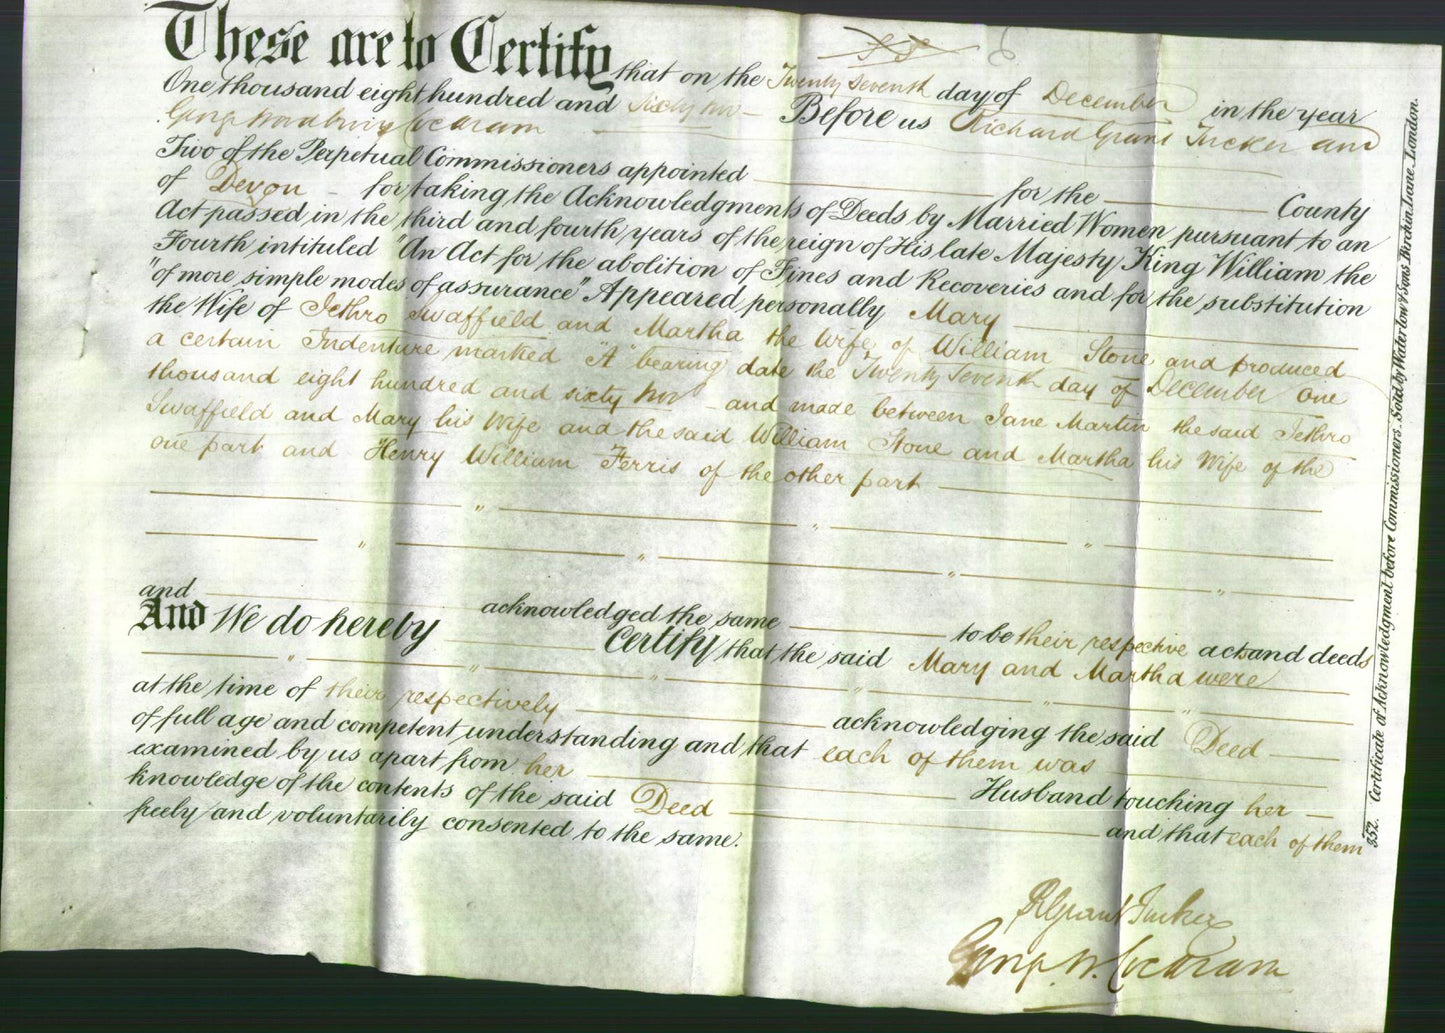 These are to Certify that on the Twenty seventh day of December in the year
One thousand eight hundred and sixty two Before us Richard Grant Tucker and
George Cochram
Two of the Perpetual Commissioners appointed for the County
of Devon for taking the Acknowledgments of Deeds by Married Women pursuant to an
Act passed in the third and fourth years of the reign of His late Majesty King William the
Fourth intituled "An Act for the abolition of Fines and Recoveries and for the substitution
"of more simple modes of assurance" Appeared personally Mary
the Wife of Jethro Swaffield and Martha the Wife of William Stone and produced
a certain Indenture marked "A" bearing date the Twenty Seventh day of December one
thousand eight hundred and sixty two and made between Jane Martin the said Jethro
Swaffield and Mary his Wife and the said William Stone and Martha his Wife of the
one part and Henry William Ferris of the other part
and acknowledged the same to be their respective acts and deeds
And We do hereby Certify that the said Mary and Martha were
at the time of their respectively acknowledging the said Deed
of full age and competent understanding and that each of them was
examined by us apart from her Husband touching her
knowledge of the contents of the said Deed and that each of them
freely and voluntarily consented to the same.
RGrant Tucker
George W. Cochram
352. Certificate of Acknowledgment before Commissioners. Sold by Waterlow & Sons. Birchin Lane. London.